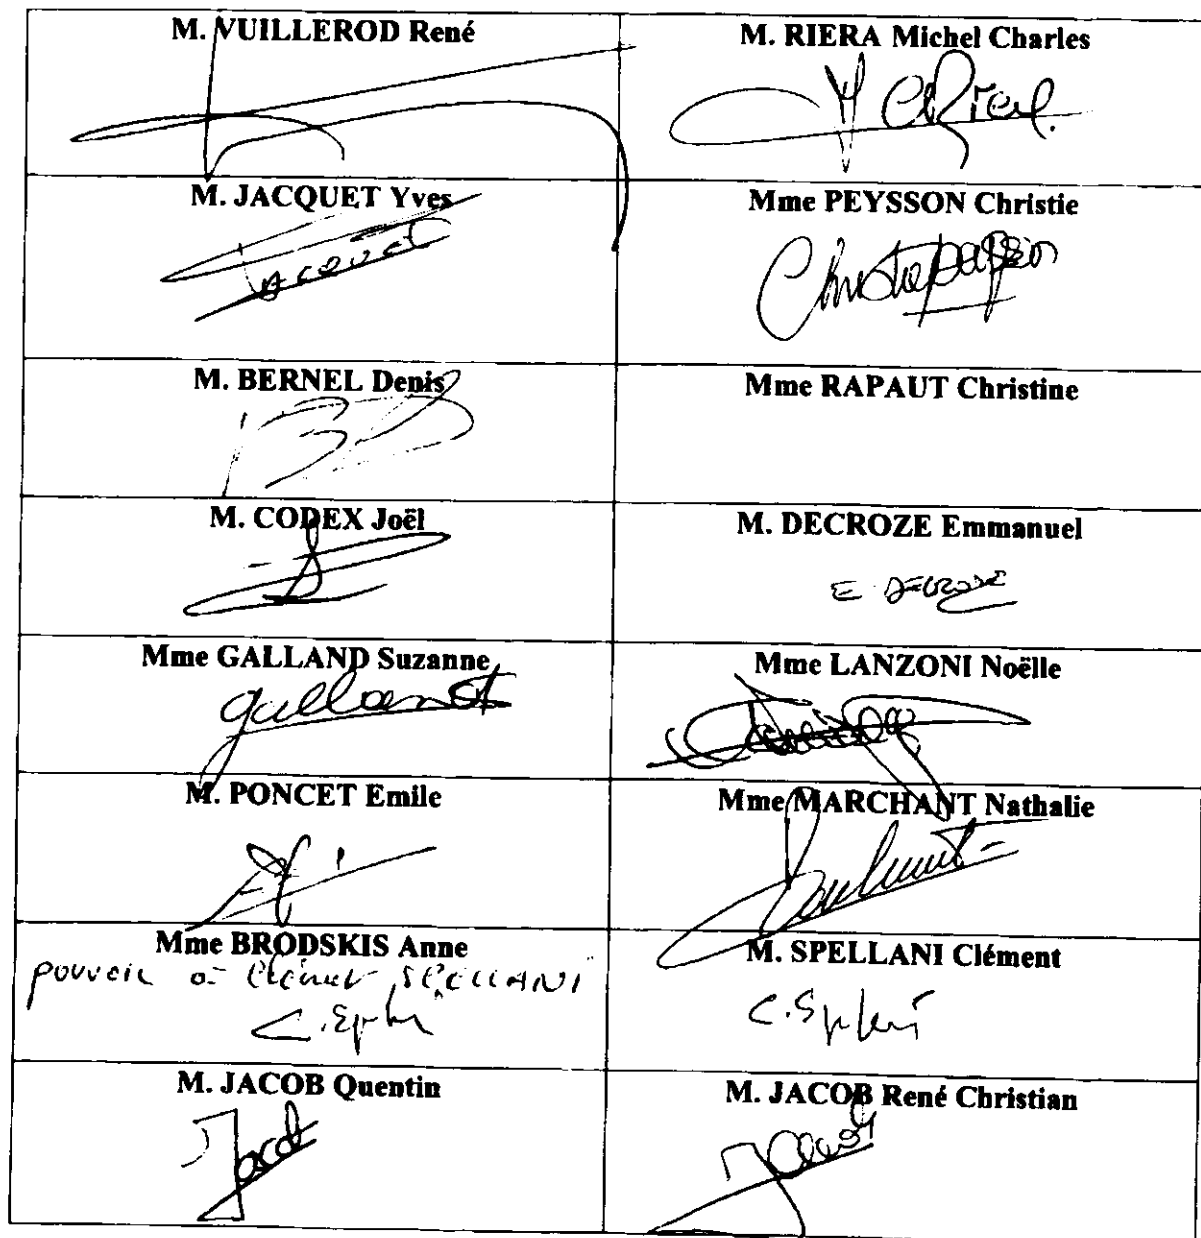 M. VUILLEROD René
M. RIERA Michel Charles
M. JACQUET Yves
Mme PEYSSON Christie
M. BERNEL Denis
Mme RAPAUT Christine
M. CODEX Joël
M. DECROZE Emmanuel
E. DECROZE
Mme GALLAND Suzanne
galland
Mme LANZONI Noëlle
M. PONCET Emile
Mme MARCHANT Nathalie
Mme BRODSKIS Anne
pouvoir à Clément SPELLANI
M. SPELLANI Clément
M. JACOB Quentin
Jacob
M. JACOB René Christian